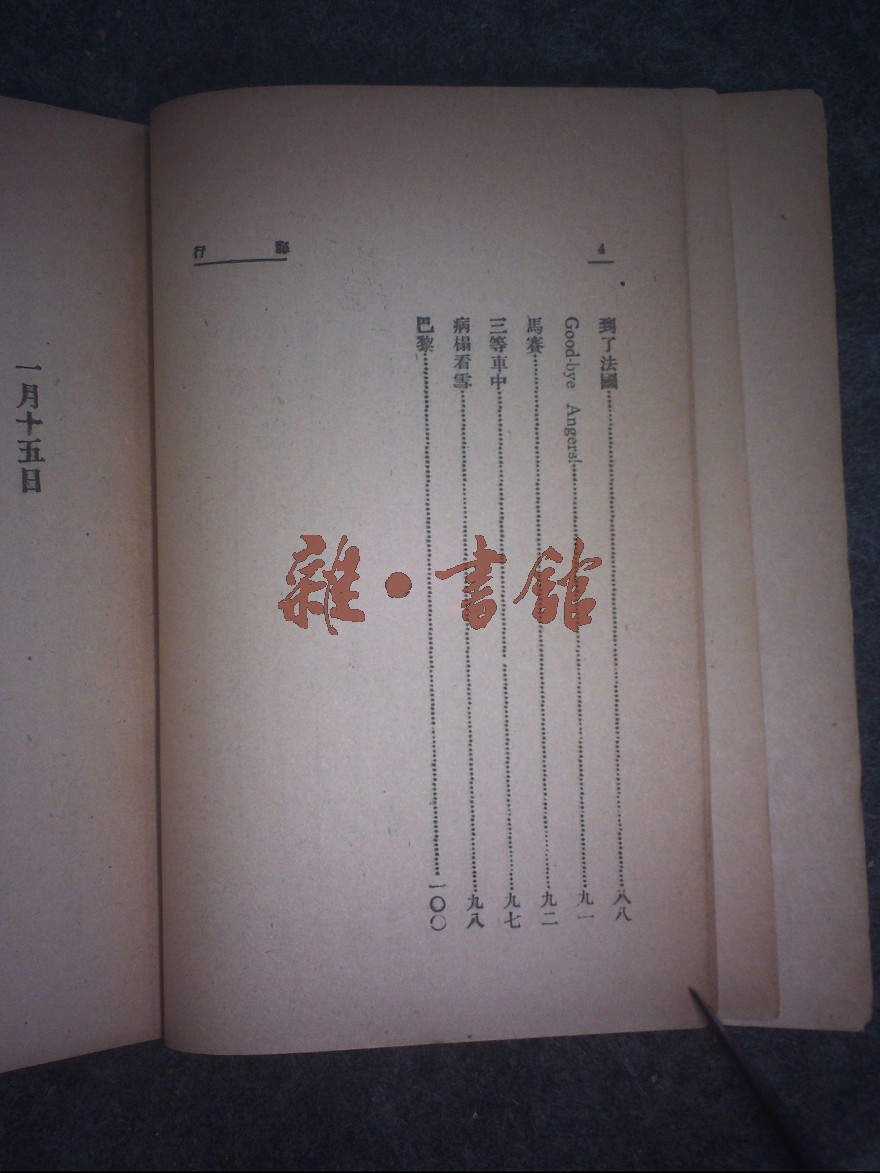 4
行
到了法國……八八
Good-bye Angers!……九一
馬賽……九二
三等車中……九七
病榻看雪……九八
巴黎……一〇〇
一月十五日
雜·書館